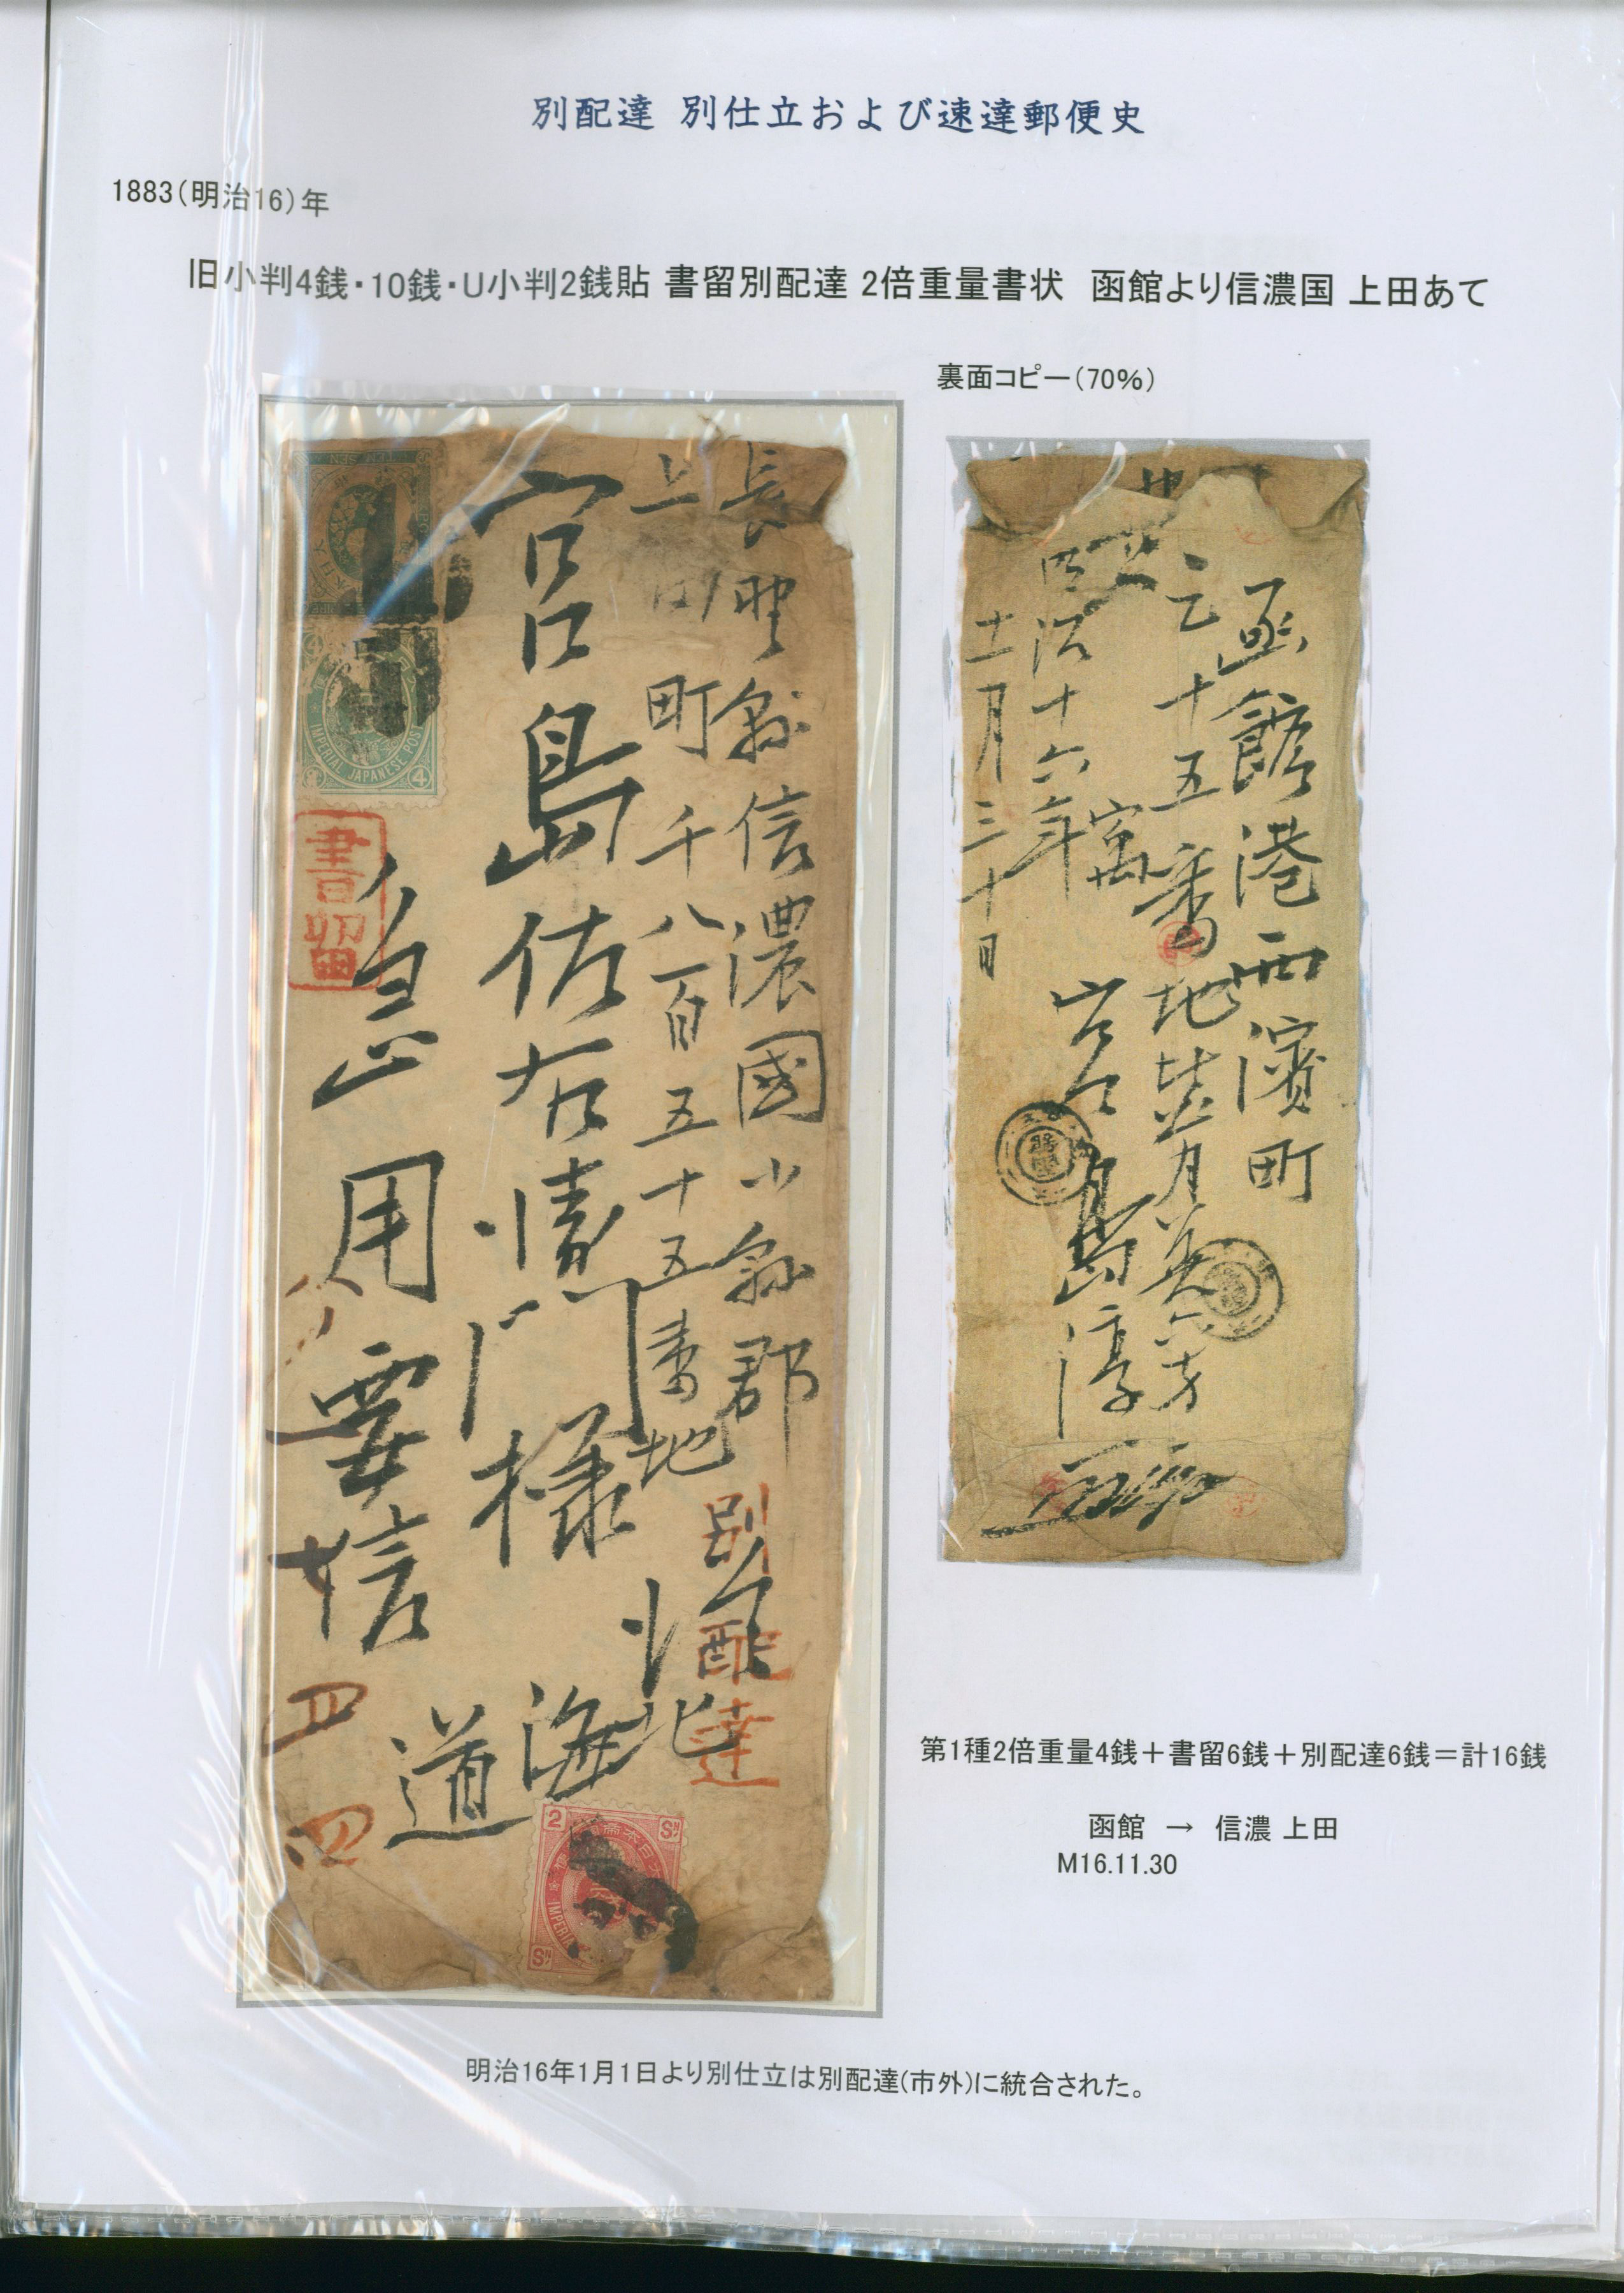 別配達 別仕立および速達郵便史
1883(明治16)年
旧小判4銭・10銭・U小判2銭貼 書留別配達 2倍重量書状 函館より信濃国 上田あて
裏面コピー(70%)
長野縣信濃國小縣郡
上田町千八百五十五番地
宮島佐右衛門様
急用要信
北海道
書留
別配達
IMPERIAL JAPANESE POST
4
2 Sn
Sn
函館港西濱町
二十五番地
宮島淳
明治十六年
十一月三十日
第1種2倍重量4銭+書留6銭+別配達6銭=計16銭
函館 → 信濃 上田
M16.11.30
明治16年1月1日より別仕立は別配達(市外)に統合された。